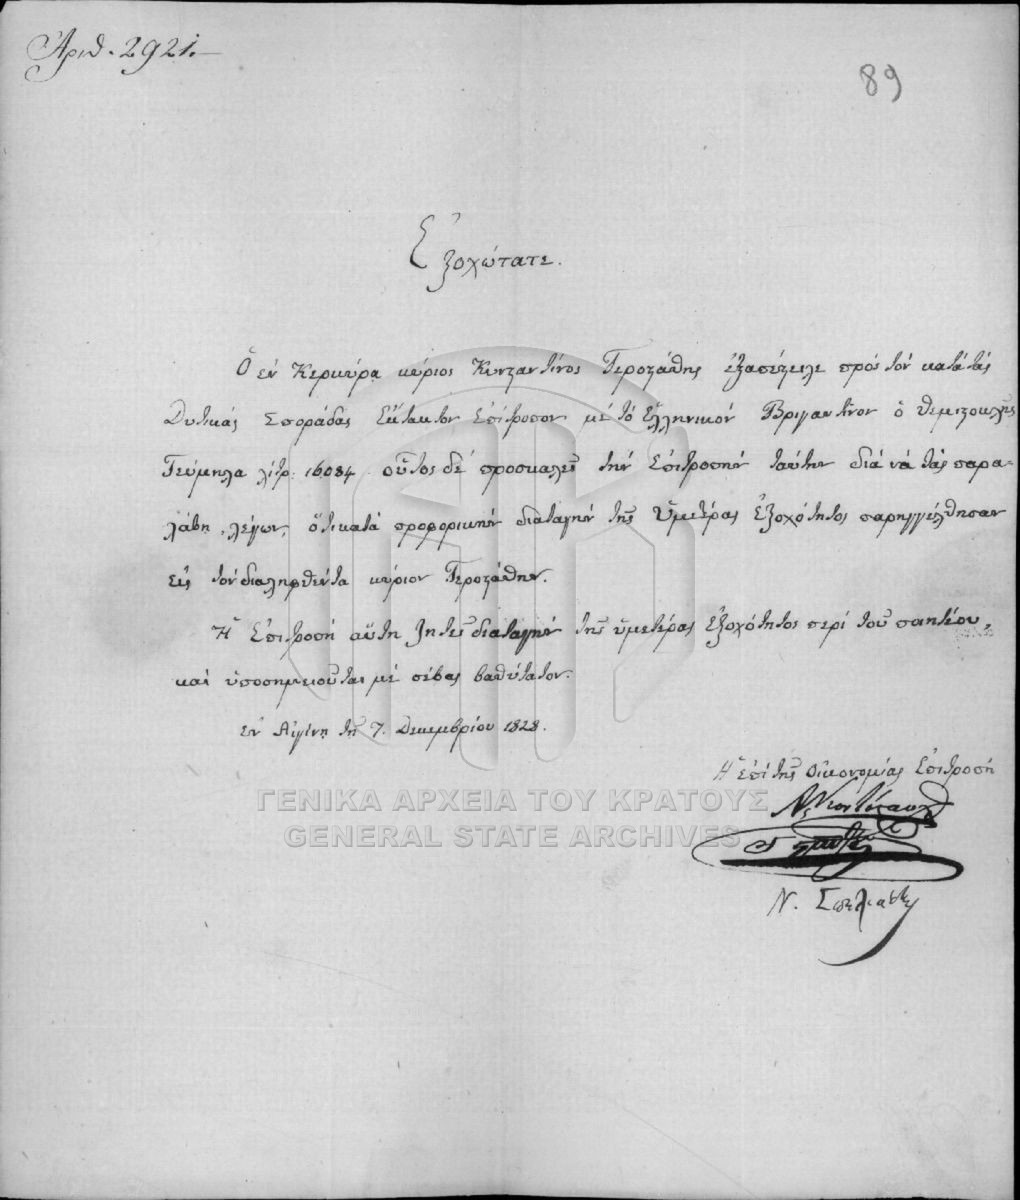 Ἀριθ. 2921.
89
Ἐξοχώτατε.
Ὁ ἐν Κερκύρᾳ κύριος Κωνσταντῖνος Γεροστάθης ἐξαπέστειλε πρὸς τὸν κατὰ τὰς
Δυτικὰς Σποράδας Ἔκτακτον Ἐπίτροπον μὲ τὸ Ἑλληνικὸν Βριγαντῖνον ὁ Θεμιστοκλῆς
Γεώμηλα λίτρ. 16084 οὗτος δὲ προσκαλεῖ τὴν Ἐπιτροπὴν ταύτην διὰ νὰ τὰς παρα-
λάβῃ, λέγων, ὅτι κατὰ προφορικὴν διαταγὴν τῆς Ὑμετέρας Ἐξοχότητος παρηγγέλθησαν
εἰς τὸν διαληφθέντα κύριον Γεροστάθην.
Ἡ Ἐπιτροπὴ αὕτη ζητεῖ διαταγὴν τῆς ὑμετέρας Ἐξοχότητος περὶ τοῦ πρακτέου,
καὶ ὑποσημειοῦται μὲ σέβας βαθύτατον.
Ἐν Αἰγίνῃ τῇ 7. Δεκεμβρίου 1828.
Ἡ ἐπὶ τῆς Οἰκονομίας Ἐπιτροπὴ
ΓΕΝΙΚΑ ΑΡΧΕΙΑ ΤΟΥ ΚΡΑΤΟΥΣ
GENERAL STATE ARCHIVES
Ν.